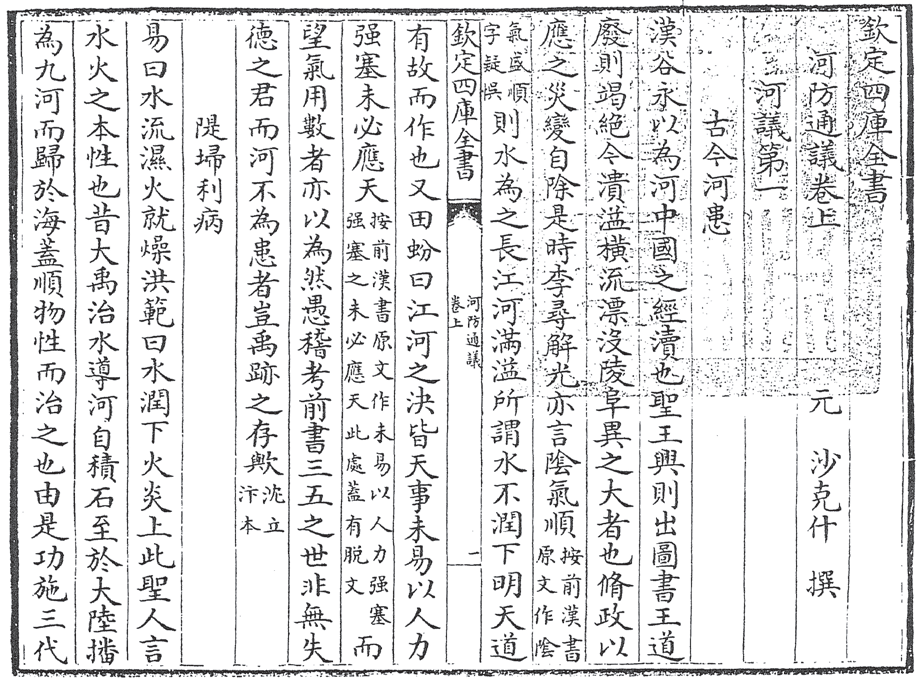 欽定四庫全書
河防通議卷上
元 沙克什 撰
河議第一
古今河患
漢谷永以為河中國之經瀆也聖王興則出圖書王道
廢則竭絕今潰溢橫流漂沒陵阜異之大者也脩政以
應之災變自除是時李尋解光亦言陰氣順按前漢書原文作陰
氣盛順字疑悞則水為之長江河滿溢所謂水不潤下明天道
欽定四庫全書
河防通議
卷上
一
有故而作也又田蚡曰江河之決皆天事未易以人力
强塞未必應天按前漢書原文作未易以人力强塞强塞之未必應天此處蓋有脫文而
望氣用數者亦以為然愚稽考前書三五之世非無失
徳之君而河不為患者豈禹跡之存歟沈立汴本
隄埽利病
易曰水流濕火就燥洪範曰水潤下火炎上此聖人言
水火之本性也昔大禹治水導河自積石至於大陸播
為九河而歸於海蓋順物性而治之也由是功施三代